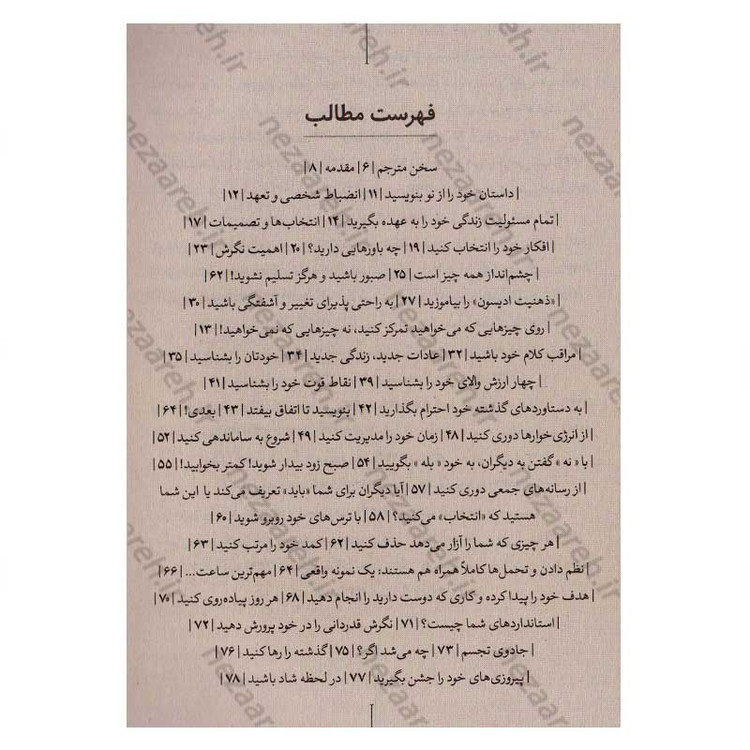 فهرست مطالب
سخن مترجم |۶| مقدمه |۸|
| داستان خود را از نو بنویسید |۱۱| انضباط شخصی و تعهد |۱۲|
| تمام مسئولیت زندگی خود را به عهده بگیرید |۱۴| انتخاب‌ها و تصمیمات |۱۷|
| افکار خود را انتخاب کنید |۱۹| چه باورهایی دارید؟ |۲۰| اهمیت نگرش |۲۳|
| چشم‌انداز همه چیز است |۲۵| صبور باشید و هرگز تسلیم نشوید! |۶۲|
| «ذهنیت ادیسون» را بیاموزید |۲۷| به راحتی پذیرای تغییر و آشفتگی باشید |۳۰|
| روی چیزهایی که می‌خواهید تمرکز کنید، نه چیزهایی که نمی‌خواهید! |۱۳|
| مراقب کلام خود باشید |۳۲| عادات جدید، زندگی جدید |۳۴| خودتان را بشناسید |۳۵|
| چهار ارزش والای خود را بشناسید |۳۹| نقاط قوت خود را بشناسید |۴۱|
| به دستاوردهای گذشته خود احترام بگذارید |۴۲| بنویسید تا اتفاق بیفتد |۴۳| بعدی! |۶۴|
| از انرژی‌خوارها دوری کنید |۴۸| زمان خود را مدیریت کنید |۴۹| شروع به ساماندهی کنید |۵۲|
| با « نه » گفتن به دیگران، به خود « بله » بگویید |۵۴| صبح زود بیدار شوید! کمتر بخوابید! |۵۵|
| از رسانه‌های جمعی دوری کنید |۵۷| آیا دیگران برای شما «باید» تعریف می‌کند یا این شما
هستید که «انتخاب» می‌کنید؟ |۵۸| با ترس‌های خود روبرو شوید |۶۰|
| هر چیزی که شما را آزار می‌دهد حذف کنید |۶۲| کمد خود را مرتب کنید |۶۳|
| نظم دادن و تحمل‌ها کاملاً همراه هم هستند: یک نمونه واقعی |۶۴| مهم‌ترین ساعت... |۶۶|
| هدف خود را پیدا کرده و کاری که دوست دارید را انجام دهید |۶۸| هر روز پیاده‌روی کنید |۷۰|
| استانداردهای شما چیست؟ |۷۱| نگرش قدردانی را در خود پرورش دهید |۷۲|
| جادوی تجسم |۷۳| چه می‌شد اگر؟ |۷۵| گذشته را رها کنید |۷۶|
| پیروزی‌های خود را جشن بگیرید |۷۷| در لحظه شاد باشید |۷۸|
nezaareh.ir